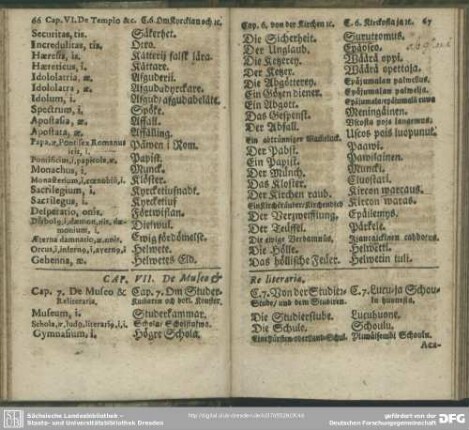 66 Cap. VI. De Templo &c. C.6. Om Kyrckian och ꝛc.
Securitas, tis. Säkerhet.
Incredulitas, tis. Otro.
Hæresis, is. Kätterij falsk lära.
Hæreticus, i. Kättare.
Idololatria, æ. Afguderij.
Idololatra, æ. Afgudadyrckare.
Idolum, i. Afgud/ afgudabeläte.
Spectrum, i. Spöke.
Apostasia, æ. Affall.
Apostata, æ. Affälling.
Papa, æ, Pontifex Romanus Påwen i Rom.
Pontificius, i, papicola, æ. Papist.
Monachus, i. Munck.
Monasterium, i, cœnobiũ, i. Klöster.
Sacrilegium, i. Kyrcketiufnadt.
Sacrilegus, i. Kyrcketiuf
Desperatio, onis. Förtwiflan.
Diabolus, i, dæmon, nis, dæmonium, i. Diefwul.
Æterna damnatio, æ, onis. Ewig fördömelse.
Orcus, i, inferno, i, averno, i. Helwete.
Gehenna, æ. Helwetes Eld.
CAP. VII. De Museo &
Cap. 7. De Museo & Cap. 7. Om Studer-
Re literaria.
Museum, i. Studerkammar.
Schola, æ, ludo, literarijs, i, i. Schola/
Gymnasium, i. Höger Schola.
Cap. 6. von der Kirchen ꝛc. C. 6. Kirckosta ja ꝛc. 67
Die Sicherheit. Suruttomus.
Der Unglaub. Epäusco.
Die Ketzerey. Wäärä oppi.
Der Ketzer. Wäärä opettaja.
Die Abgötterey. Epäjumalan palwelus.
Ein Götzen diener. Epäjumalan palwelia.
Ein Abgott. Epäjumala/ epäjumala cuwa
Das Gespenst. Meningäinen.
Der Abfall. Uscosta pois langemus.
Ein abtrünniger Uscos pois luopunut.
Der Pabst. Paawi.
Ein Papist. Pawilainen.
Der Münch. Muncki.
Das Kloster. Cluostari.
Der Kirchen raub. Kircon warcaus.
Kircon waras.
Der Verzweifflung. Epäilemys.
Der Teuffel. Pärkele.
Die ewige Verdamnüs. Ijancaikkinen cadotus.
Die Hölle. Helwetti.
Das höllische Feuer. Helwetin tuli.
Re literaria.
C. 7. Von der Studier- C. 7. Lucu- ja Schou-
Stube/ und dem Studieren. lu huonesta.
Die Studierstube. Lucuhuone.
Die Schule. Schoulu.
Ylimäisembi Schoulu.
Aca-
Sächsische Landesbibliothek –
Staats- und Universitätsbibliothek Dresden
gefördert von der
Deutschen Forschungsgemeinschaft
DFG